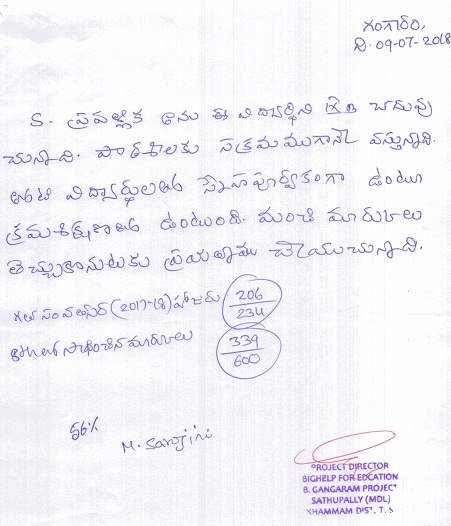 గంగారం,
ది. 09-07-2018
S. ప్రవల్లిక అను ఈ విద్యార్థిని 8వ చదువు
చున్నాది. పాఠశాలకు సక్రమముగానే వస్తున్నాది.
తోటి విద్యార్థులతో స్నేహపూర్వకంగా ఉంటూ
క్రమశిక్షణతో ఉంటుంది. మంచి మారుకులు
తెచ్చుకొనుటకు ప్రయత్నము చేయుచున్నాది.
గత సంవత్సర (2017-18) హాజరు 206/234
సాధించిన మారుకులు 339/600
56%
M. Sarojini
PROJECT DIRECTOR
BIGHELP FOR EDCATION
B. GANGARAM PROJECT
SATHUPALLY (MDL)
KHAMMAM DIST. T.S